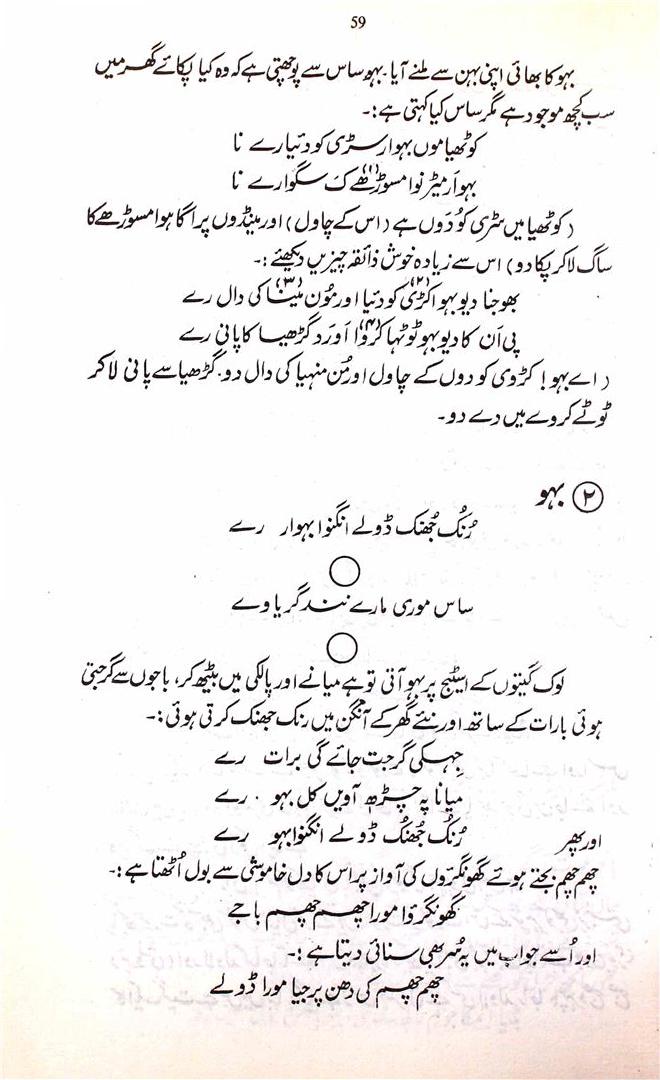 59
بہو کا بھائی اپنی بہن سے ملنے آیا۔ بہو ساس سے پوچھتی ہے کہ وہ کیا پکائے گھر میں
سب کچھ موجود ہے مگر ساس کیا کہتی ہے :۔
کوٹھیا موں بہوار سڑی کو دئیا رے نا
بہو اَر میڑ نوا مسوڑ(۱)ھے کَ سگوا رے نا
(کوٹھیا میں سٹری کو دَوں ہے (اس کے چاول) اور مینڈوں پر اگا ہوا مسوڑھے کا
ساگ لا کر پکا دو) اس سے زیادہ خوش ذائقہ چیزیں دیکھئے :۔
بھوجنا دیو بہو اکڑی(۲) کو دئیا اور مُون مینا(۳) کی دال رے
پی اَن کا دیو بہو ٹوٹہا کروا(۴) اَورَ د گڑھیا کا پانی رے
(اے بہو! کڑوی کو دوں کے چاول اور مُن منہیا کی دال دو۔ گڑھیا سے پانی لا کر
ٹوٹے کروے میں دے دو۔
۲ بہو
رُنُک جُھنک ڈولے انگنوا بہوار رے
ساس موری مارے نند گریاوے
لوک گیتوں کے اسٹیج پر بہو آتی تو ہے میانے اور پالکی میں بیٹھ کر، باجوں سے گرجتی
ہوئی بارات کے ساتھ اور نئے گھر کے آنگن میں رنک جھنک کرتی ہوئی :۔
جِہکی گرجت جائے گی برات رے
میانا پہ چڑھ آویں کل بہو رے
اور پھر رُنُک جُھنُک ڈولے انگنوا بہو رے
چھم چھم بجتے ہوئے گھونگرؤں کی آواز پر اس کا دل خاموشی سے بول اُٹھتا ہے :۔
گھونگرؤا مورا چھم چھم باجے
اور اُسے جواب میں یہ سُر بھی سنائی دیتا ہے :۔
چھم چھم کی دھن پر جیا مورا ڈولے